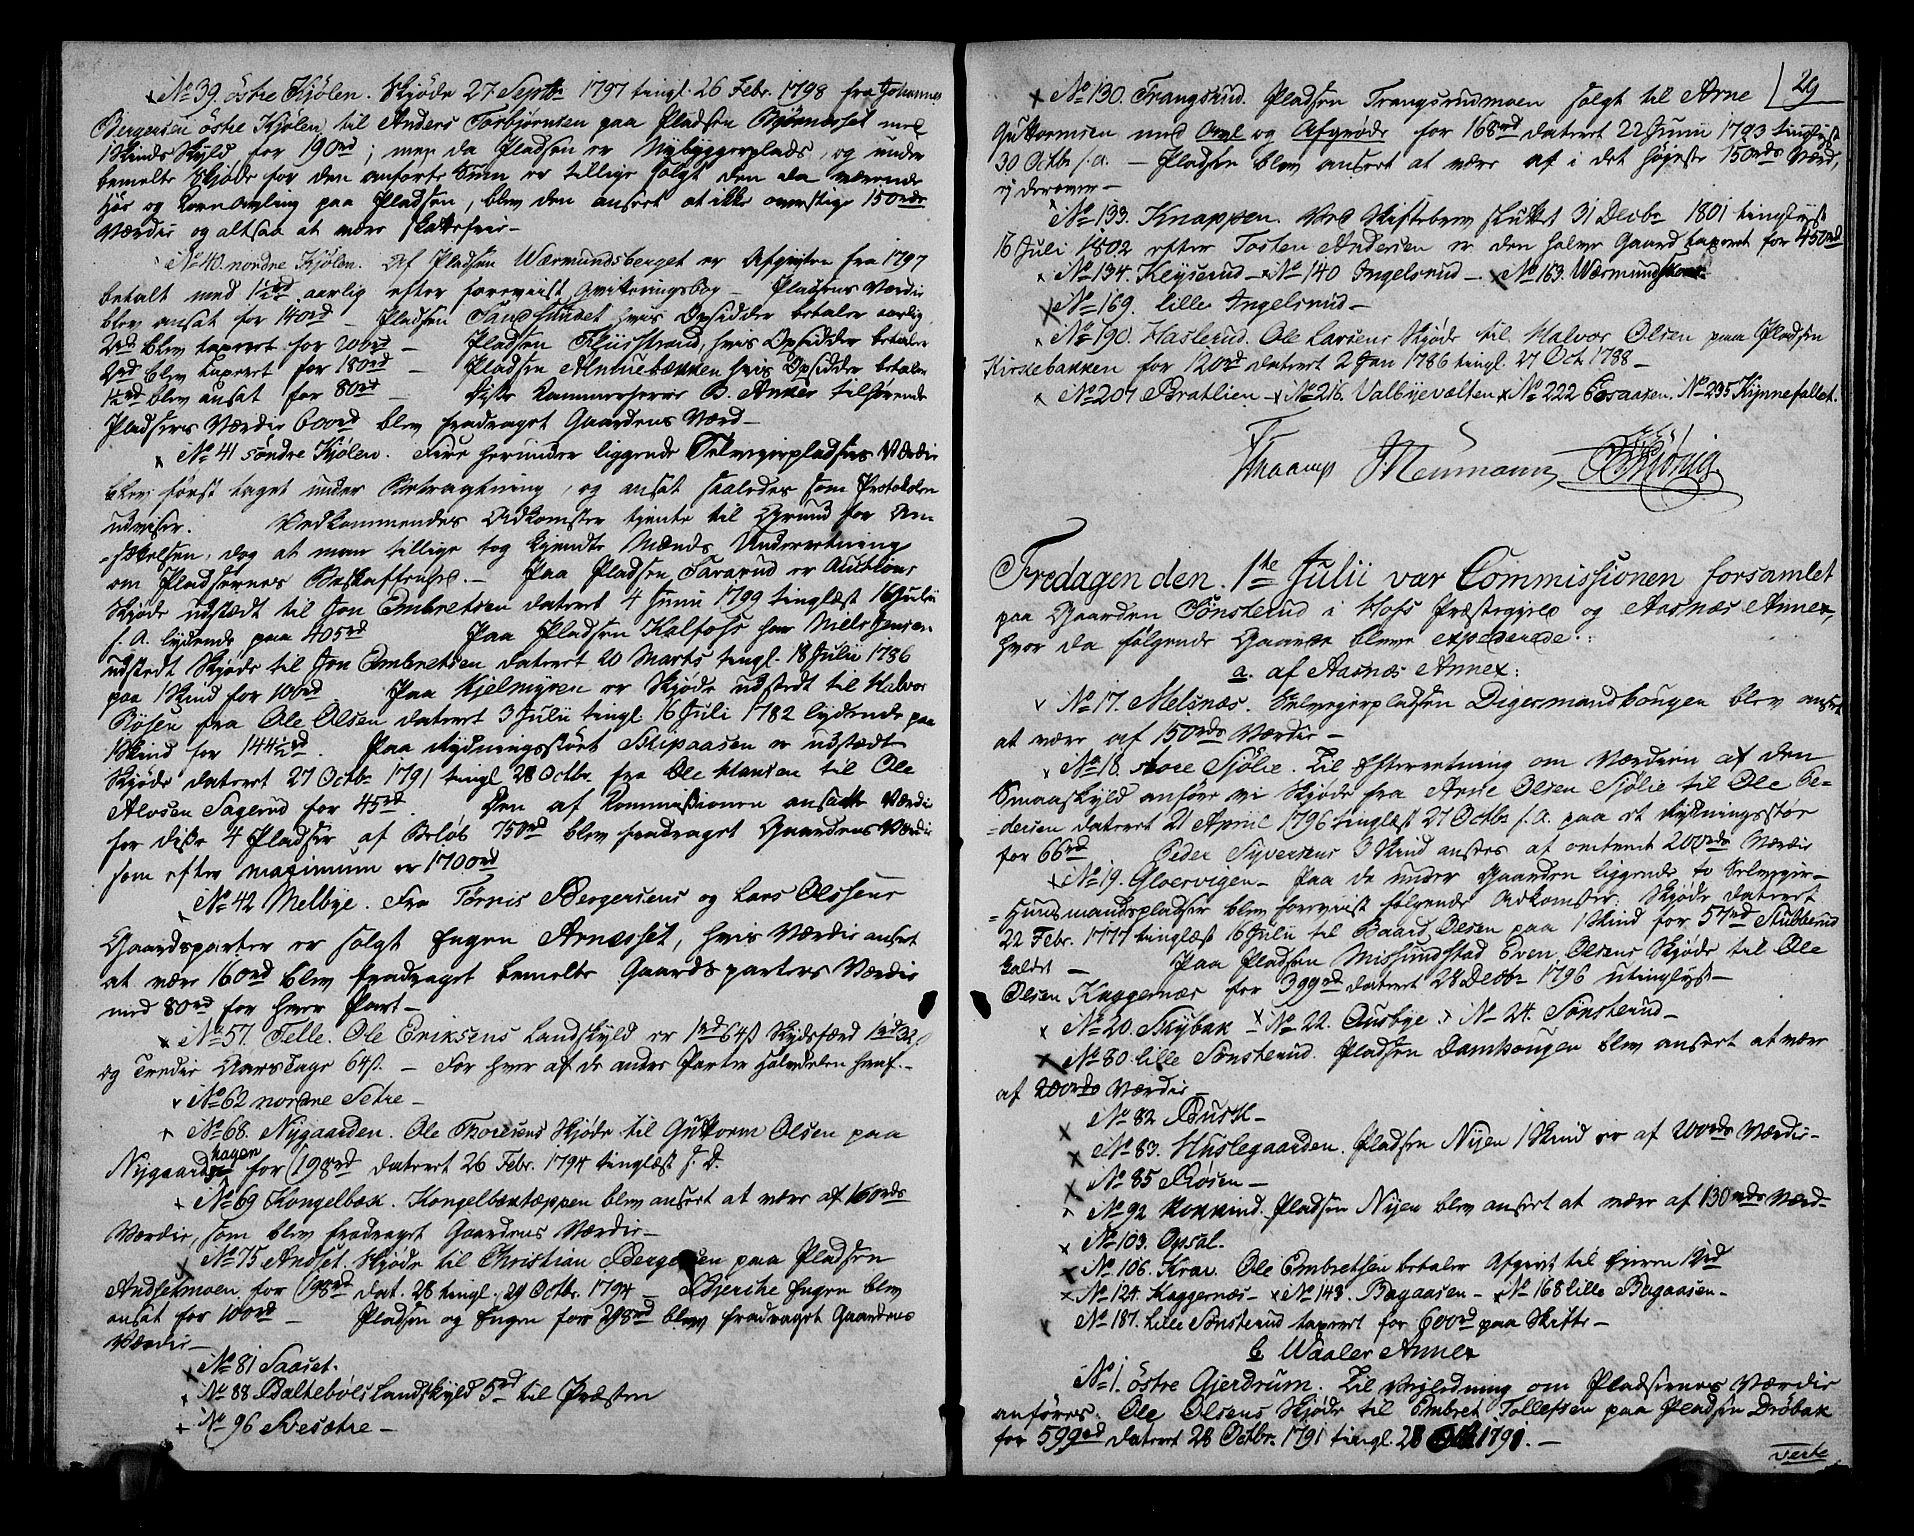 No 39. östre Kjølen. Skjøde 27 Septbr 1797 tingl. 26 Febr. 1798 fra Johannes
Bergersen östre Kjølen til Anders Torbjørnsen paa Pladsen Bjørneset med
1 Skinds Skyld for 190rd; men da Pladsen er Nybyggerplads, og under
bemelte Skjøde for den anførte Sum er tillige solgt den da værende
Høe og Korn Avling paa Pladsen, blev den anseet at ikke overstige 150rds
Værdie og altsaa at være skattefrie.-
No 40. nordre Kjølen. Af Pladsen Wærmundsberget er Afgivten fra 1797
betalt med 1½rd aarlig efter foreviist Qviteringsbog - Pladsens Værdie
blev ansat for 140rd - Pladsen Sandsundet hvis Opsidder betaler aarlig
2rd blev taxeret for 200rd - Pladsen Fliisstrand, hvis Opsidder betaler
2rd blev taxeret for 180rd - Pladsen Almuebækken hvis Opsidder betaler
1½rd blev ansat for 80rd - Disse Kammerherre B. Anker tilhørende
Pladsers Værdie 600rd blev fradraget Gaardens Værd-
No 41 söndre Kjølen. Fire herunder liggende Selveierpladses Værdie
blev først taget under Betragtning, og ansat saaledes som Protokolen
udviser. Vedkommendes Adkomster tjente til Grund for An-
sættelsen, dog at man tillige tog kjendte Mænds Underretning
om Pladsernes Beskaffenhed.- Paa Pladsen Tararud er Auctions
Skjøde udstædt til Jon Embretsen dateret 4 Junii 1799 tinglæst 16 Julii
s. A. lydende paa 405rd Paa Pladsen Kalfoss har Niels Jensen
udstedt Skjøde til Jon Embretsen dateret 20 Marts tingl. 18 Julii 1786
paa 1 Skind for 100rd Paa Kjelmyren er Skjøde udstedt til Halvor
Bosen fra Ole Olsen dateret 3 Julii tingl 16 Juli 1782 lydende paa
1 Skind for 144½rd. Paa Rydningsstöet Stipaasen er udstædt
Skjøde dateret 27 Octbr 1791 tingl 28 Octbr. fra Ole Hansen til Ole
Alvsen Sagerud for 45rd. Den af Kommissionen ansatte Værdie
for disse 4 Pladser af Beløb 750rd blev fradraget Gaardens Værdie
som efter maximum er 1700rd
No 42 Melbye. Fra Tørris Bergersens og Lars Olssens
Gaardsparter er solgt Engen Arneset, hvis Værdie anseet
at være 160rd blev fradraget bemelte Gaardsparters Værdie
med 80rd for hver Part-
No 57. Telle. Ole Eriksens Landskyld er 1rd 64ß Skydsfærd 1rd 32ß
og Tredie Aars Tage 64ß. - For hver af de andre Parter halvdelen heraf.-
No 62 nordre Setre-
No 68. Nygaarden. Ole Thoresens Skjøde til Guttorm Olsen paa
Nygaardshagen for 198rd dateret 26 Febr. 1794 tinglæst s. D.
No 69 Kongelbæk. Kongelbæktæppen blev anseet at være af 160rds
Værdie, som blev fradraget Gaardens Værdie-
No 75 Andset. Skjøde til Christian Bergersen paa Pladsen
Andsetmoen for 198rd dat. 28 tingl. 29 Octbr. 1794 - Bjerche Engen blev
ansat for 100rd - Pladsen og Engen for 298rd blev fradraget Gaardens
Værdie-
No 81 Saaset.
No 88 Baltebøls Landskyld 5rd til Præsten
No 96 Svesætre-
29
No 130. Trangsrud. Pladsen Trangsrudmoen solgt til Arne
Guttormsen med Avl og Afgrøde for 168rd dateret 22 Junii 1793 tinglyst
30 Octbr s.a. - Pladsen blev anseet at være af i det høieste 150rds Værd,
ej derover-
No 133. Knappen. Ved Skiftebrev sluttet 31 Decbr 1801 tinglyst
16 Juli 1802 efter Tosten Andersen er den halve Gaard taxeret for 450rd
No 134. Keyserud - No 140 Ingelsrud - No 163. Wærmunds
No 169. lille Ingelsrud-
No 190. Haslerud. Ole Larsens Skjøde til Halvor Olsen paa Pladsen
Kirkebakken for 120rd dateret 2 Jan 1786 tingl. 27 Oct. 1788-
No 207 Bratlien - No 216. Valbyevolten No 222 Esaasen. No 235 Kynnefallet.
Thaarup JNeumann
Fredagen den 1te Julii var Commissionen forsamlet
paa Gaarden Sønsterud i Hofs Præstegjeld og Aasnæs Annex,
hvor da følgende Gaarde bleve expederede:
a. af Aasnæs Annex:
No 17. Melsnæs. Selveierpladsen Digermandhougen blev anseet
at være af 150rds Værdie-
No 18. store Sjølie. Til Efterretning om Værdien af den
Smaaskyld anföre vi Skjøde fra Arne Olsen Sjølie til Ole Pe-
dersen dateret 21 April 1796 tinglæst 27 Octbr s.a. paa et Rydningsstöe
for 66rd Peder Syversens 3 Skind ansees at omtrent 200rds Værdie
No 19. Gloervigen. Paa de under Gaarden liggende to Selveier-
Huusmandspladser blev foreviist følgende Adkomster: Skjøde dateret
22 Febr. 1777 tinglæst 16 Julii til Baard Olsen paa 1 Skind for 57rd Stubberud
kaldet - Paa Pladsen Missundstad Even Olsens Skjøde til Ole
Olsen Kaggernæs for 399rd dateret 28 Decbr 1796 utinglyst-
No 20. Skybak - No 22. Ausbye. No 24. Sønsterud-
No 80. lille Sønsterud. Pladsen Damhougen blev anseet at være
af 200rds Værdie-
No 82 Busk-
No 83. Huslegaarden. Pladsen Nyen 1 Skind er af 200rds Værdie-
No 85 Røsen-
No 92 Pladsen Nyen blev anseet at være af 130rds Værd-
No 103. Opsal.
No 106. Krav. Ole Embretsen betaler Afgivt til Eieren 12rd
No 124. Kaggernæs - No 143. Bagaasen - No 168 lille Bagaasen-
No 187. Lille Sønsterud taxeret for 600rd paa Skifte-
b Waaler Annex
No 1. östre Gjerdrum. Til Veiledning om Pladsernes Værdie
anføres. Ole Olsens Skjøde til Embret Tollefsen paa Pladsen Dröbak
for 599rd dateret 28 Octbr. 1791 tingl. 28 Oct 1791.-
verte